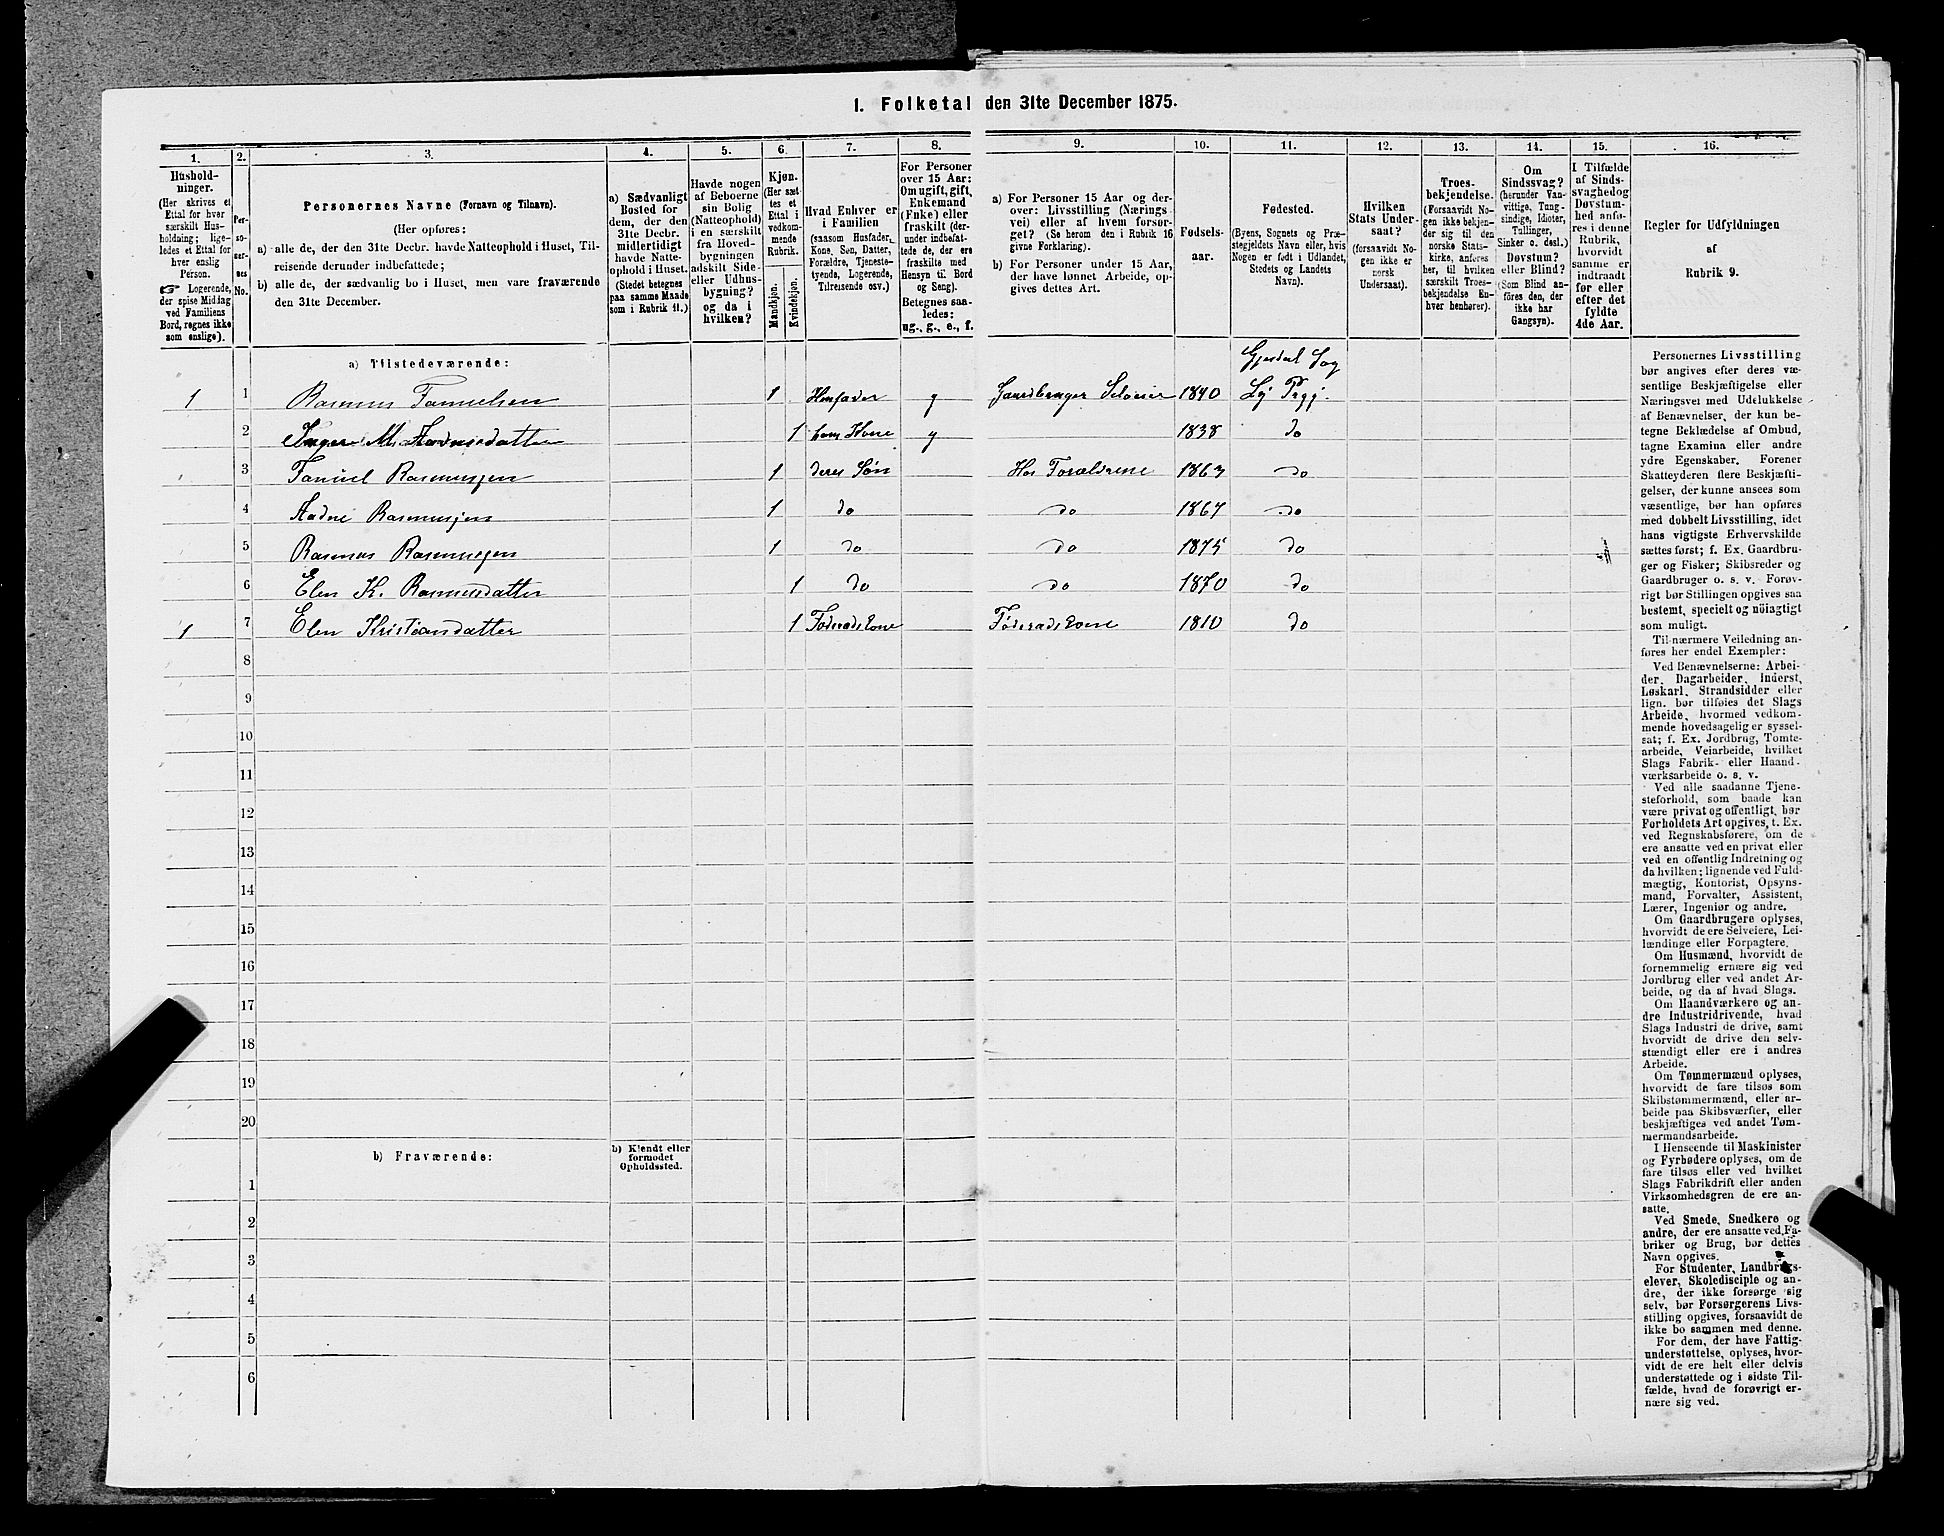 1. Folketal den 31te December 1875.
1. 2. 3. 4. 5. 6. 7. 8. 9. 10. 11. 12. 13. 14. 15. 16.
Hushold-
ninger.
(Her skrives et
Ettal for hver
særskilt Hus-
holdning; lige-
ledes et Ettal for
hver enslig
Person.
☞ Logerende,
der spise Middag
ved Familiens
Bord, regnes ikke
som enslige).
Per-
so-
ner-
nes
No.
Personernes Navne (Fornavn og Tilnavn).
(Her opføres:
a) alle de, der den 31te Decbr. havde Natteophold i Huset, Til-
reisende derunder indbefattede;
b) alle de, der sædvanlig bo i Huset, men vare fraværende
den 31te December.
a) Sædvanligt
Bosted for
dem, der den
31te Decbr.
midlertidigt
havde Natte-
ophold i Huset.
(Stedet betegnes
paa samme Maade
som i Rubrik 11.)
Havde nogen
af Beboerne
sin Bolig
(Natteophold)
i en særskilt
fra Hoved-
bygningen
adskilt Side-
eller Udhus-
bygning?
og da i
hvilken?
Kjøn.
(Her sæt-
tes et
Ettal i
vedkom-
mende
Rubrik.
Mandkjøn.
Kvindekjøn.
Hvad Enhver er
i Familien
(saasom Husfader,
Kone, Søn, Datter,
Forældre, Tjeneste-
tyende, Logerende,
Tilreisende osv.)
For Personer
over 15 Aar:
Om ugift, gift,
Enkemand
(Enke) eller
fraskilt (der-
under indbefat-
tede de, der ere
fraskilte med
Hensyn til Bord
og Seng).
Betegnes saa-
ledes:
ug., g., e., f.
a) For Personer 15 Aar og der-
over: Livsstilling (Nærings
vei) eller af hvem forsør-
get? (Se herom den i Rubrik 16
givne Forklaring).
b) For Personer under 15 Aar,
der have lønnet Arbeide, op-
gives dettes Art.
Fødsels-
aar.
Fødested.
(Byens, Sognets og Præ-
stegjeldets Navn eller, hvis
Nogen er født i Udlandet,
Stedets og Landets
Navn).
Hvilken
Stats Under-
saat?
(forsaavidt No-
gen ikke er
norsk
Undersaat).
Troes-
bekjendelse.
(Forsaavidt No-
gen ikke bekjen-
der sig til den
norske Stats-
kirke, anføres
her, til hvilken
særskilt Troes-
bekjendelse En-
hver henhører).
Om
Sindssvag?
(herunder Van-
vittige, Tung-
sindige, Idioter,
Tullinger,
Sinker o. desl.)
Døvstum?
eller Blind?
(Som Blind an-
føres den, der
ikke har
Gangsyn).
I Tilfælde
af Sinds-
svaghed og
Døvstum-
hed anfø-
res i denne
Rubrik,
hvorvidt
samme er
indtraadt
før eller
efter det
fyldte
4de Aar.
Regler for Udfyldningen
af
Rubrik 9.
a) Tilstedeværende:
Gjesdal Sog
1 1 Rasmus Tønnelsen 1 Husfader g Gaardbruger Selveier 1840 Ly Prgj.
2 Inger M. Aadnesdatter 1 hans Kone g 1838 do
3 Tønnel Rasmussen 1 deres Søn Hos Forældrene 1863 do
4 Aadne Rasmussen 1 do do 1867 do
5 Rasmus Rasmussen 1 do do 1875 do
6 Elen K. Rasmusdatter 1 do do 1870 do
1 7 Elen Kristiansdatter 1 Føderads Kone Føderads Kone 1810 do
8
9
10
11
12
13
14
15
16
17
18
19
20
b) Fraværende:
b) Kjendt eller
formodet
Opholdssted.
1
2
3
4
5
6
Personernes Livsstilling
bør angives efter deres væ-
sentlige Beskjæftigelse eller
Næringsvei med Udelukkelse
af Benævnelser, der kun be-
tegne Beklædelse af Ombud,
tagne Examina eller andre
ydre Egenskaber. Forener
Skatteyderen flere Beskjæfti-
gelser, der kunne ansees som
væsentlige, bør han opføres
med dobbelt Livsstilling, idet
hans vigtigste Erhvervskilde
sættes først; f. Ex. Gaardbru-
ger og Fisker; Skibsreder og
Gaardbruger o. s. v. Forøv-
rigt bør Stillingen opgives saa
bestemt, specielt og nöiagtigt
som muligt.
Til nærmere Veiledning an-
føres her endel Exempler:
Ved Benævnelserne: Arbei-
der, Dagarbeider, Inderst,
Løskarl, Strandsidder eller
lign. bør tilføies det Slags
Arbeide, hvormed vedkom-
mende hovedsagelig er syssel-
sat; f. Ex. Jordbrug, Tomte-
arbeide, Veiarbeide, hvilket
Slags Fabrik- eller Haand-
værksarbeide o. s. v.
Ved alle saadanne Tjene-
steforhold, som baade kan
være privat og offentligt, bør
Forholdets Art opgives, t. Ex.
ved Regnskabsførere, om de
ere ansatte ved en privat eller
ved en offentlig Indretning og
da hvilken; lignende ved Fuld-
mægtig, Kontorist, Opsyns-
mand, Forvalter, Assistent,
Lærer, Ingeniør og andre.
Om Gaardbrugere oplyses,
hvorvidt de ere Selveiere, Lei-
lændinge eller Forpagtere.
Om Husmænd, hvorvidt de
fornemmelig ernære sig ved
Jordbrug eller ved andet Ar-
beide, og da af hvad Slags.
Om Haandværkere og an-
dre Industridrivende, hvad
Slags Industri de drive, samt
hvorvidt de drive den selv-
stændigt eller ere i andres
Arbeide.
Om Tømmermænd oplyses,
hvorvidt de fare tilsøs som
Skibstømmermænd, eller ar-
beide paa Skibsværfter, eller
beskjæftiges ved andet Tøm-
mermandsarbeide.
I Henseende til Maskinister
og Fyrbødere oplyses, om de
fare tilsøs eller ved hvilket
Slags Fabrikdrift eller anden
Virksomhedsgren de ere an-
satte.
Ved Smede, Snedkere og
andre, der ere ansatte ved Fa-
briker og Brug, bør dettes
Navn opgives.
For Studenter, Landbrugs-
elever, Skoledisciple og an-
dre, der ikke forsørge sig
selv, bør Forsørgerens Livs-
stilling opgives, forsaavidt de
ikke bo sammen med denne.
For dem, der have Fattig-
understøttelse, oplyses, hvor-
vidt de ere helt eller delvis
understøttede og i sidste Til-
fælde, hvad de forøvrigt er-
nære sig ved.